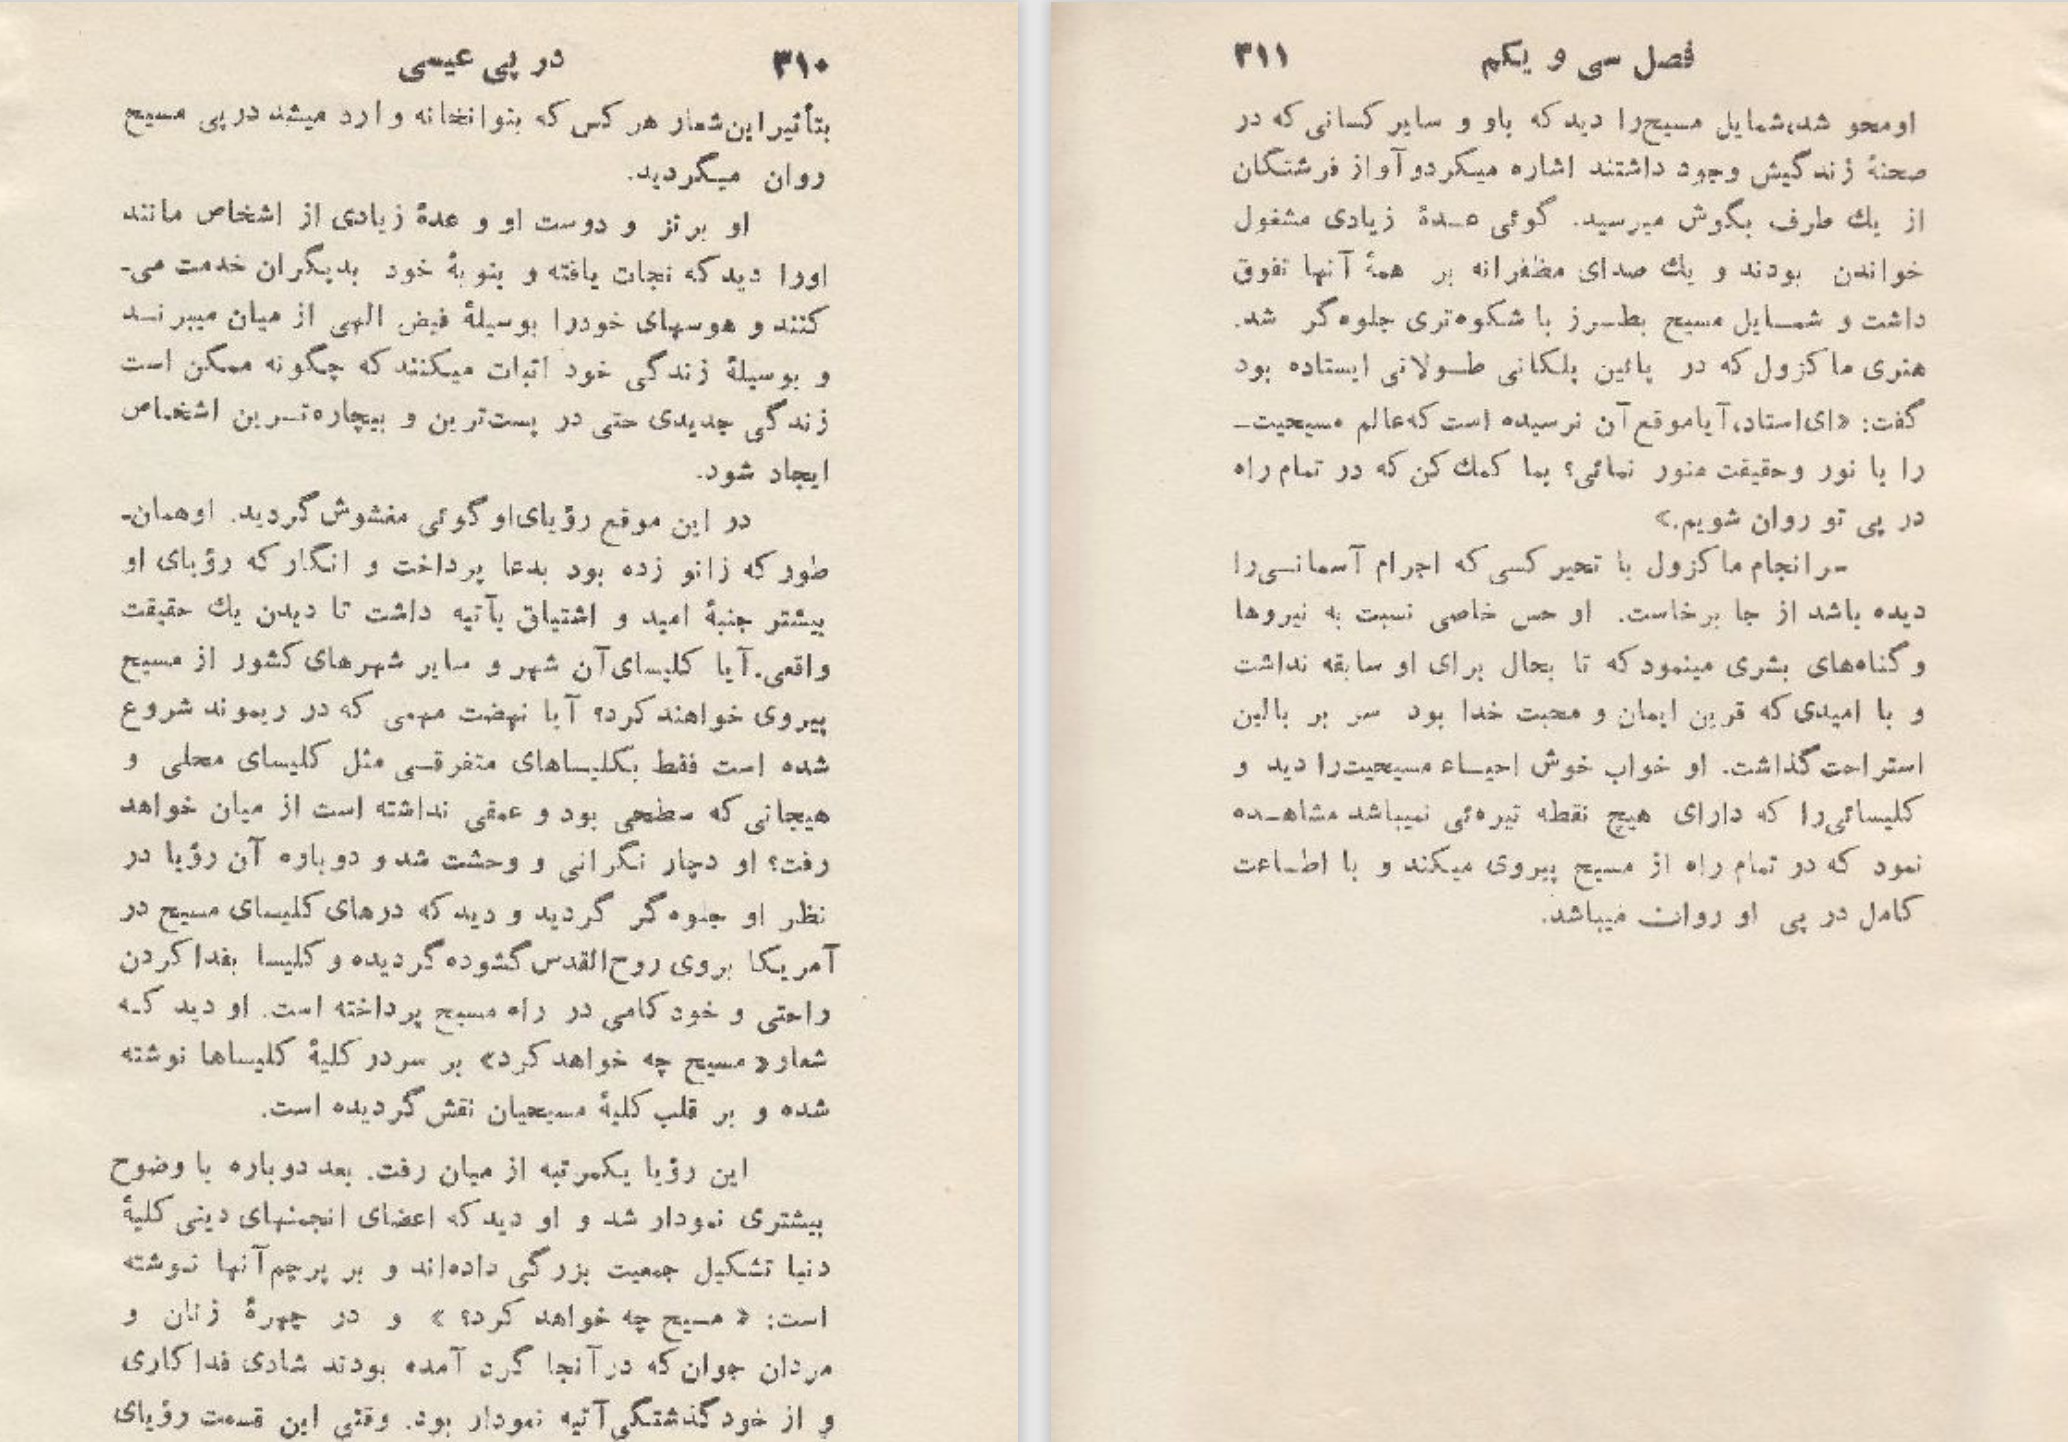 ۳۱۰ در پی عیسی
بتأثیر این شعار هر کس که بنوانخانه وارد میشد در پی مسیح
روان میگردید.
او برنز و دوست او و عدهٔ زیادی از اشخاص مانند
اورا دید که نجات یافته و بنوبهٔ خود بدیگران خدمت می‌ـ
کنند و هوسهای خودرا بوسیلهٔ فیض الهی از میان میبرند
و بوسیلهٔ زندگی خود اثبات میکنند که چگونه ممکن است
زندگی جدیدی حتی در پست‌ترین و بیچاره‌ترین اشخاص
ایجاد شود.
در این موقع رؤیای او گوئی مغشوش گردید. او همان‌ـ
طور که زانو زده بود بدعا پرداخت و انگار که رؤیای او
بیشتر جنبهٔ امید و اشتیاق بآتیه داشت تا دیدن یك حقیقت
واقعی. آیا کلیسای آن شهر و سایر شهرهای کشور از مسیح
پیروی خواهند کرد؟ آیا نهضت مهمی که در ریموند شروع
شده است فقط بکلیساهای متفرقی مثل کلیسای محلی و
هیجانی که سطحی بود و عمقی نداشته است از میان خواهد
رفت؟ او دچار نگرانی و وحشت شد و دوباره آن رؤیا در
نظر او جلوه‌گر گردید و دید که درهای کلیسای مسیح در
آمریکا بروی روح‌القدس گشوده گردیده و کلیسا بفدا کردن
راحتی و خود کامی در راه مسیح پرداخته است. او دید که
شعار «مسیح چه خواهد کرد» بر سردر کلیهٔ کلیساها نوشته
شده و بر قلب کلیهٔ مسیحیان نقش گردیده است.
این رؤیا یکمرتبه از میان رفت. بعد دوباره با وضوح
بیشتری نمودار شد و او دید که اعضای انجمنهای دینی کلیهٔ
دنیا تشکیل جمعیت بزرگی داده‌اند و بر پرچم آنها نوشته
است: « مسیح چه خواهد کرد؟ » و در چهرهٔ زنان و
مردان جوان که در آنجا گرد آمده بودند شادی فداکاری
و از خود گذشتگی آتیه نمودار بود. وقتی این قسمت رؤیای
فصل سی و یکم ۳۱۱
او محو شد، شمایل مسیح‌را دید که باو و سایر کسانی که در
صحنهٔ زندگیش وجود داشتند اشاره میکرد و آواز فرشتگان
از یك طرف بگوش میرسید. گوئی عدهٔ زیادی مشغول
خواندن بودند و یك صدای مظفرانه بر همهٔ آنها تفوق
داشت و شمایل مسیح بطرز با شکوه‌تری جلوه‌گر شد.
هنری ماکزول که در پائین پلکانی طولانی ایستاده بود
گفت: «ای استاد، آیا موقع آن نرسیده است که عالم مسیحیت‌ـ
را با نور و حقیقت منور نمائی؟ بما کمك کن که در تمام راه
در پی تو روان شویم.»
سرانجام ماکزول با تحیر کسی که اجرام آسمانی‌را
دیده باشد از جا برخاست. او حس خاصی نسبت به نیروها
و گناه‌های بشری مینمود که تا بحال برای او سابقه نداشت
و با امیدی که قرین ایمان و محبت خدا بود سر بر بالین
استراحت گذاشت. او خواب خوش احیاء مسیحیت‌را دید و
کلیسائی‌را که دارای هیچ نقطه تیره‌ئی نمیباشد مشاهده
نمود که در تمام راه از مسیح پیروی میکند و با اطاعت
کامل در پی او روان میباشد.